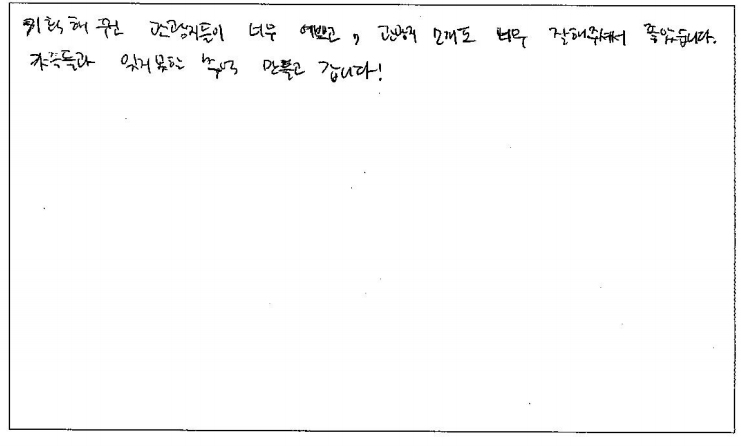 기획해 주신 관광지들이 너무 예쁘고, 관광지 소개도 너무 잘해주셔서 좋았습니다.
가족들과 잊지못할 추억 만들고 갑니다!